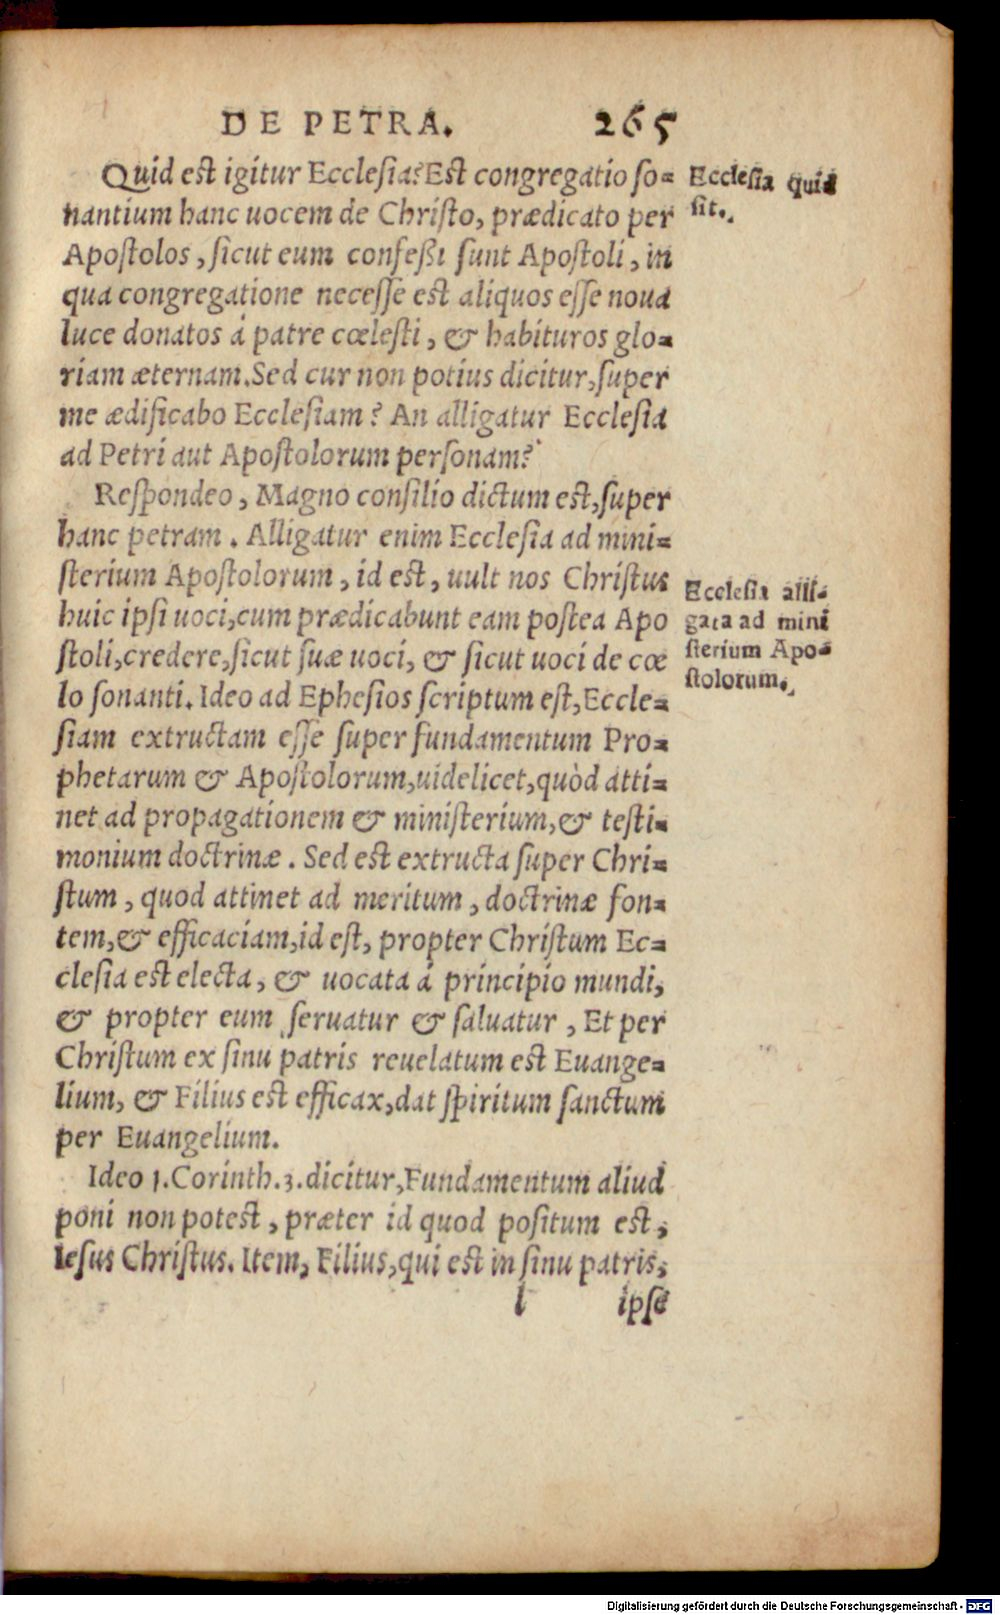 DE PETRA. 265
Quid est igitur Ecclesia? Est congregatio so-
nantium hanc uocem de Christo, prædicato per
Apostolos, sicut eum confeßi sunt Apostoli, in
qua congregatione necesse est aliquos esse noua
luce donatos á patre cœlesti, & habituros glo-
riam æternam. Sed cur non potius dicitur, super
me ædificabo Ecclesiam? An alligatur Ecclesia
ad Petri aut Apostolorum personam?
Respondeo, Magno consilio dictum est, super
hanc petram. Alligatur enim Ecclesia ad mini-
sterium Apostolorum, id est, uult nos Christus
huic ipsi uoci, cum prædicabunt eam postea Apo
stoli, credere, sicut suæ uoci, & sicut uoci de cœ
lo sonanti. Ideo ad Ephesios scriptum est, Eccle-
siam extructam esse super fundamentum Pro-
phetarum & Apostolorum, uidelicet, quòd atti-
net ad propagationem & ministerium, & testi-
monium doctrinæ. Sed est extructa super Chri-
stum, quod attinet ad meritum, doctrinæ fon-
tem, & efficaciam, id est, propter Christum Ec-
clesia est electa, & uocata á principio mundi,
& propter eum seruatur & saluatur, Et per
Christum ex sinu patris reuelatum est Euange-
lium, & Filius est efficax, dat spiritum sanctum
per Euangelium.
Ideo 1. Corinth. 3. dicitur, Fundamentum aliud
poni non potest, præter id quod positum est,
Iesus Christus. Item, Filius, qui est in sinu patris,
l ipse
Ecclesia quid
sit.
Ecclesia alli-
gata ad mini
sterium Apo-
stolorum.
Digitalisierung gefördert durch die Deutsche Forschungsgemeinschaft - DFG